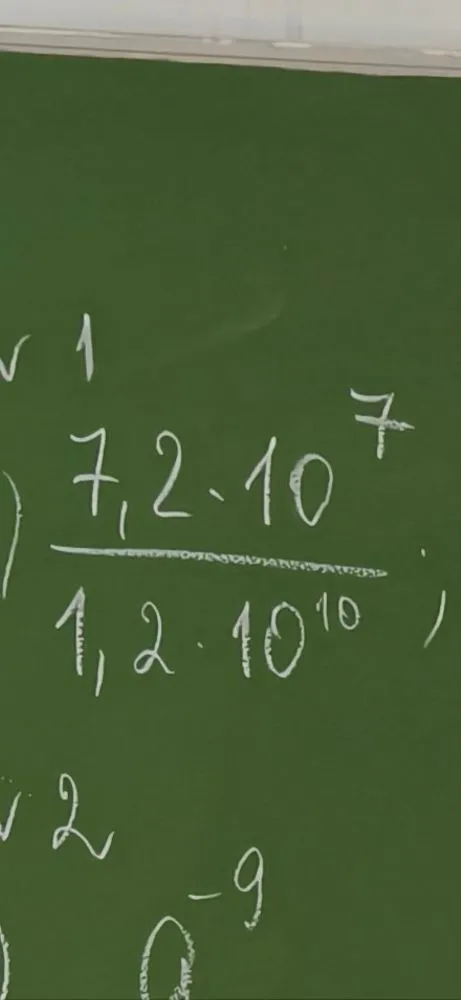 v 1
) 7,2 · 10⁷
1,2 · 10¹⁰ ;
v 2
) a⁻⁹